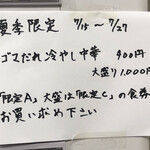 夏季限定 7/15～7/27
ゴマだれ 冷やし中華 900円
大盛り1.000円
「限定A」大盛は「限定C」の食券
お買い求め下さい